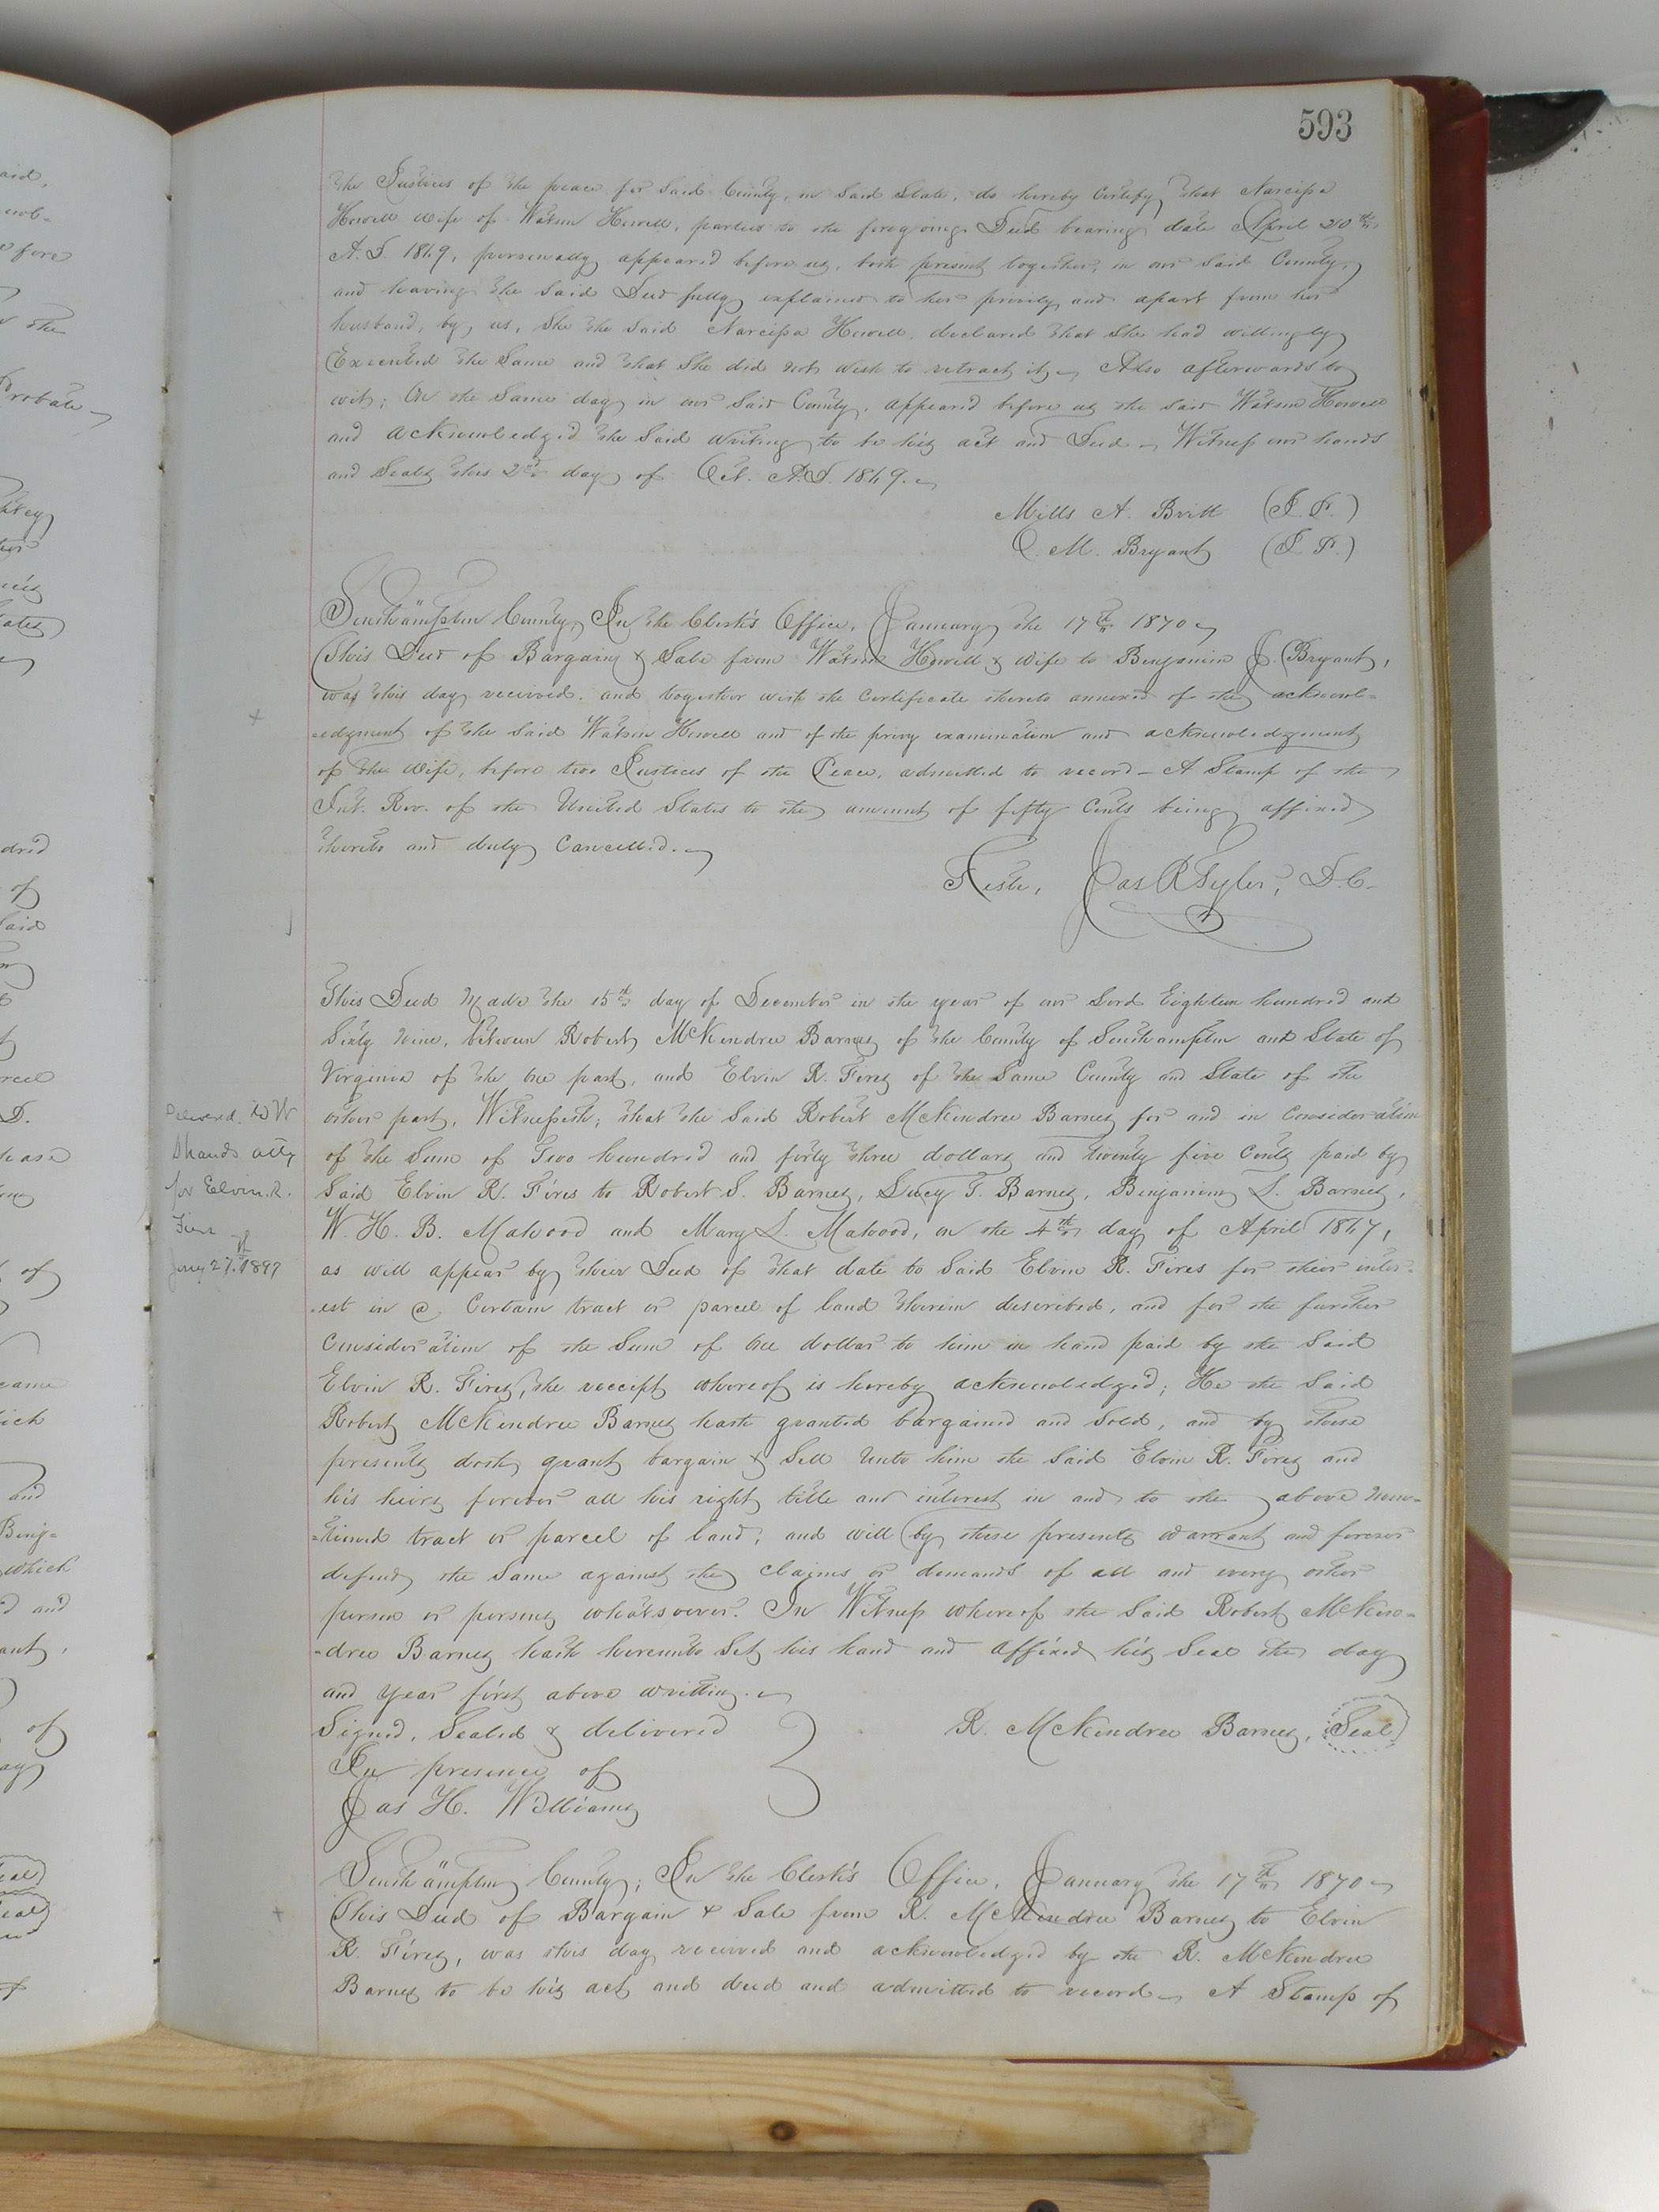 593
the Justices of the peace for said County, in said State, do hereby Certify, that Narcissa
Howell wife of Watson Howell, parties to the foregoing Deed bearing date April 20th
A.D. 1869, personally appeared before us, both present together, in our said County,
and having the said Deed fully explained to her privily and apart from her
husband, by us, She the said Narcissa Howell, declared that She had willingly
Executed the Same and that She did not wish to retract it, Also afterwards to
wit; On the Same day in our said County, appeared before us the said Watson Howell
and acknowledged the said writing to be his act and Deed - Witness our hands
and Seals this 2nd day of Oct. A.D. 1869.
Mills A. Britt (J. P.)
O. M. Bryant (J. P.)
Southampton County, In the Clerk's Office, January the 17th 1870
This Deed of Bargain & Sale from Watson Howell & wife to Benjamin J. Bryant,
was this day received, and together with the Certificate thereto annexed of the acknowl=
=edgment of the said Watson Howell and of the privy examination and acknowledgment
of the wife, before two Justices of the Peace, admitted to record - A Stamp of the
Int. Rev. of the United States to the amount of fifty Cents being affixed
thereto and duly Cancelled.
Teste, Jas R Tyler, D.C.
This Deed Made the 15th day of December in the year of our Lord Eighteen hundred and
Sixty nine, between Robert McKendree Barnes of the County of Southampton and State of
Virginia of the one part, and Elvin R. Fires of the Same County and State of the
other part, Witnesseth; that the said Robert McKendree Barnes for and in Consideration
of the Sum of Two hundred and forty three dollars and twenty five Cents paid by
Said Elvin R. Fires to Robert S. Barnes, Lucy T. Barnes, Benjamin L. Barnes,
W. H. B. Matwood and Mary L. Matwood, on the 4th day of April 1867,
as will appear by their Deed of that date to Said Elvin R. Fires for their inter-
-est in a Certain tract or parcel of land therein described, and for the further
Consideration of the Sum of One dollar to him in hand paid by the Said
Elvin R. Fires, the receipt whereof is hereby acknowledged; He the Said
Robert McKendree Barnes hath granted bargained and Sold, and by these
presents doth grant bargain & Sell Unto him the Said Elvin R. Fires and
his heirs forever all his right title and interest in and to the above men=
=tioned tract or parcel of land; and will by these presents warrant and forever
defend the Same against the Claims or demands of all and every other
person or persons whatsoever. In Witness whereof the Said Robert McKen=
=dree Barnes hath hereunto Set his hand and affixed his Seal the day
and year first above writting.
Signed, Sealed & delivered
R. McKendree Barnes, Seal
In presence of
Jas H. Williams
Southampton County; In the Clerk's Office, January the 17th 1870
This Deed of Bargain & Sale from R. McKendree Barnes to Elvin
R. Fires, was this day received and acknowledged by the R. McKendree
Barnes to be his act and deed and admitted to record - A Stamp of
Delivered to W
Shands atty
for Elvin R.
Fires
1897